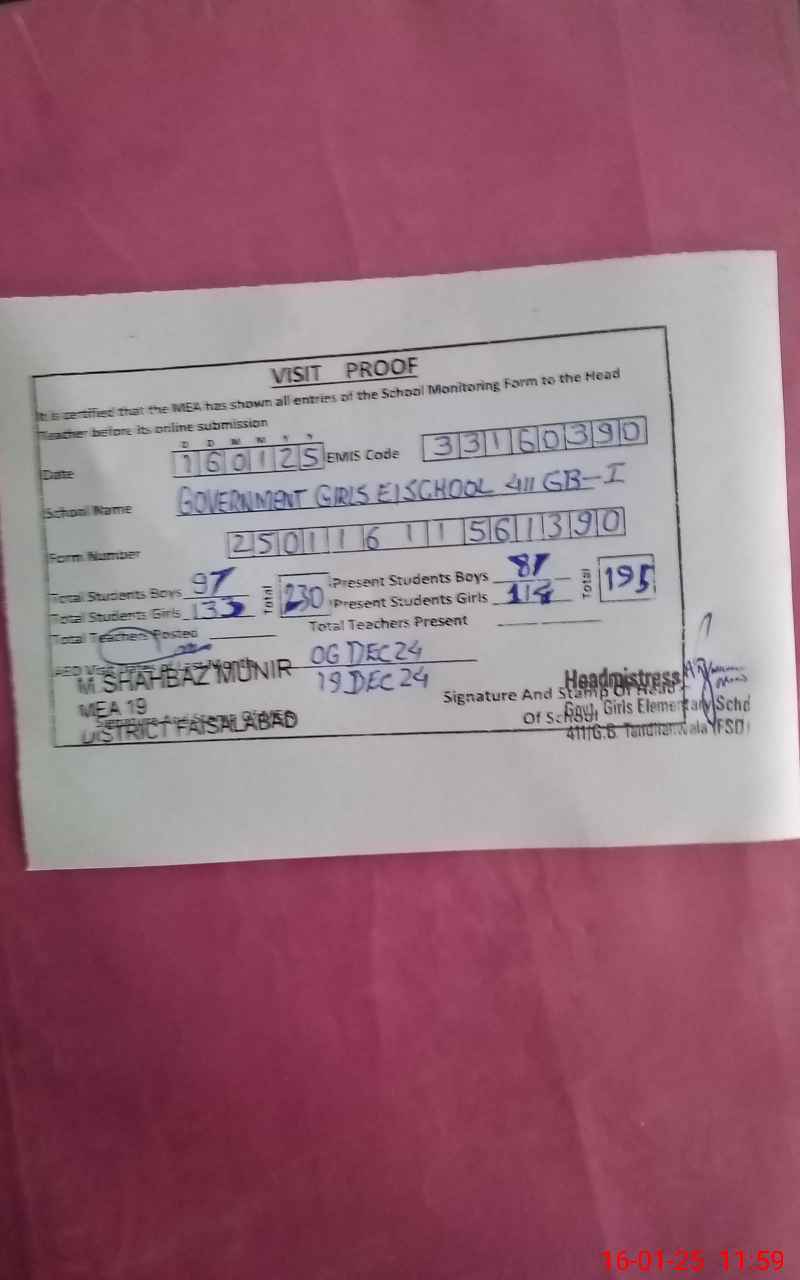 VISIT PROOF
It is certified that the MEA has shown all entries of the School Monitoring Form to the Head
Teacher before its online submission
D D M M Y Y
Date 160125 EMIS Code 33160390
School Name GOVERNMENT GIRLS E/SCHOOL 411 GB-I
Form Number 250116 11561390
Total Students Boys 97 Total 230 Present Students Boys 81 Total 195
Total Students Girls 133 Present Students Girls 114
Total Teachers Posted Total Teachers Present
AEO Visit Dates of Last Month 06 DEC 24
19 DEC 24
M. SHAHBAZ MUNIR
MEA 19
DISTRICT FAISALABAD
Signature And Stamp Of Head
Of School
Headmistress
Govt. Girls Elementary Schd
411/G.B. Tandlianwala (FSD)
16-01-25 11:59